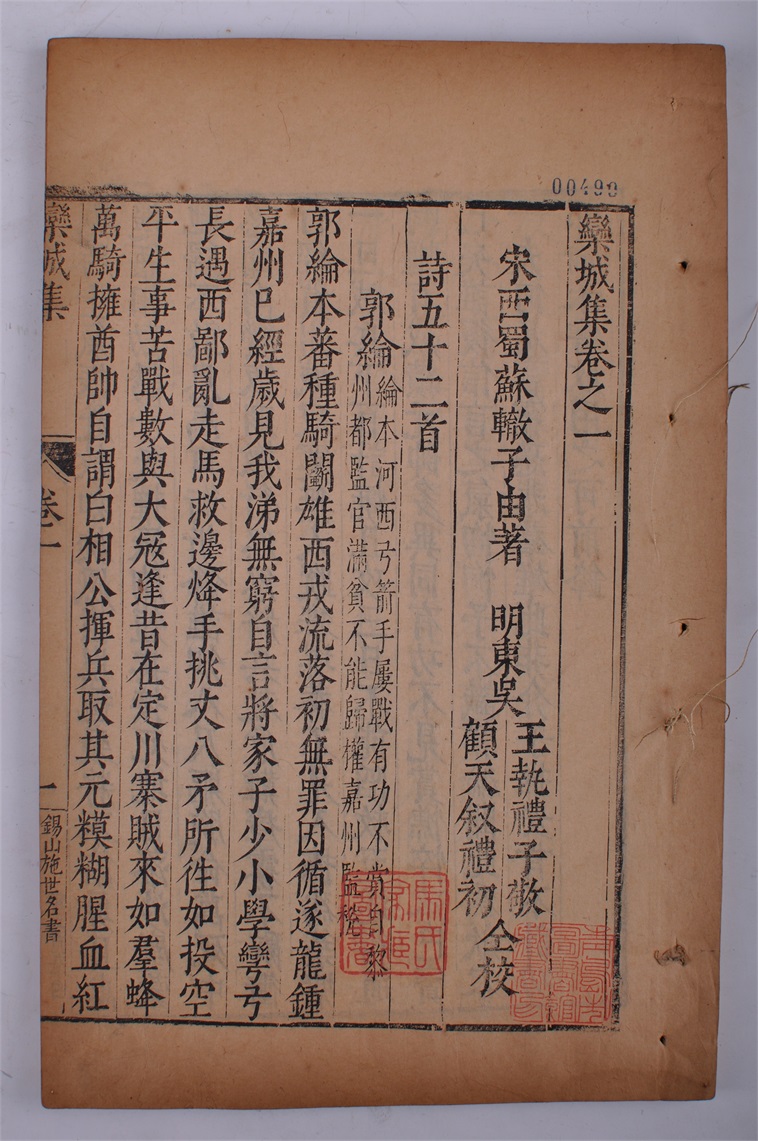 00499
欒城集卷之一
宋西蜀蘇轍子由著　明東吳
王執禮子敬
顧天叙禮初
仝校
詩五十二首
郭綸
綸本河西弓箭手屢戰有功不賞自黎
州都監官滿貧不能歸權嘉州監稅
郭綸本蕃種騎鬬雄西戎流落初無罪因循遂龍鍾
嘉州已經歲見我涕無窮自言將家子少小學彎弓
長遇西鄙亂走馬救邊烽手挑丈八矛所徃如投空
平生事苦戰數與大冦逢昔在定川寨賊來如羣蜂
萬騎擁酋帥自謂白相公揮兵取其元糢糊腥血紅
欒城集
卷一
一
錫山施世名書